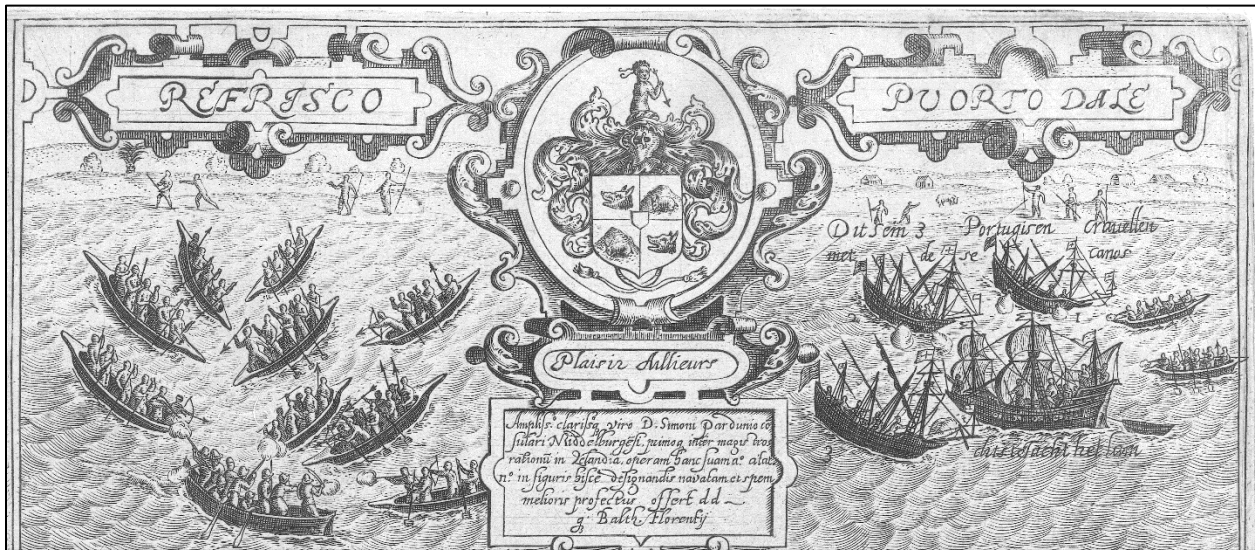 REFRISCO
PVORTO DALE
Dit sein 3 Portugisen Crauellen
met de se canos
Plaisir Aillieurs
Ampliss.° clarissq viro D. Simoni Pardunio cō
sulari Middelburgēsi, primoq inter magistros
rationū in Zelandia, operam hanc suam
in figuris hisce designandis navatam et spem
melioris profectus offert dd
Balth. Florentij
3
dit is iacht het